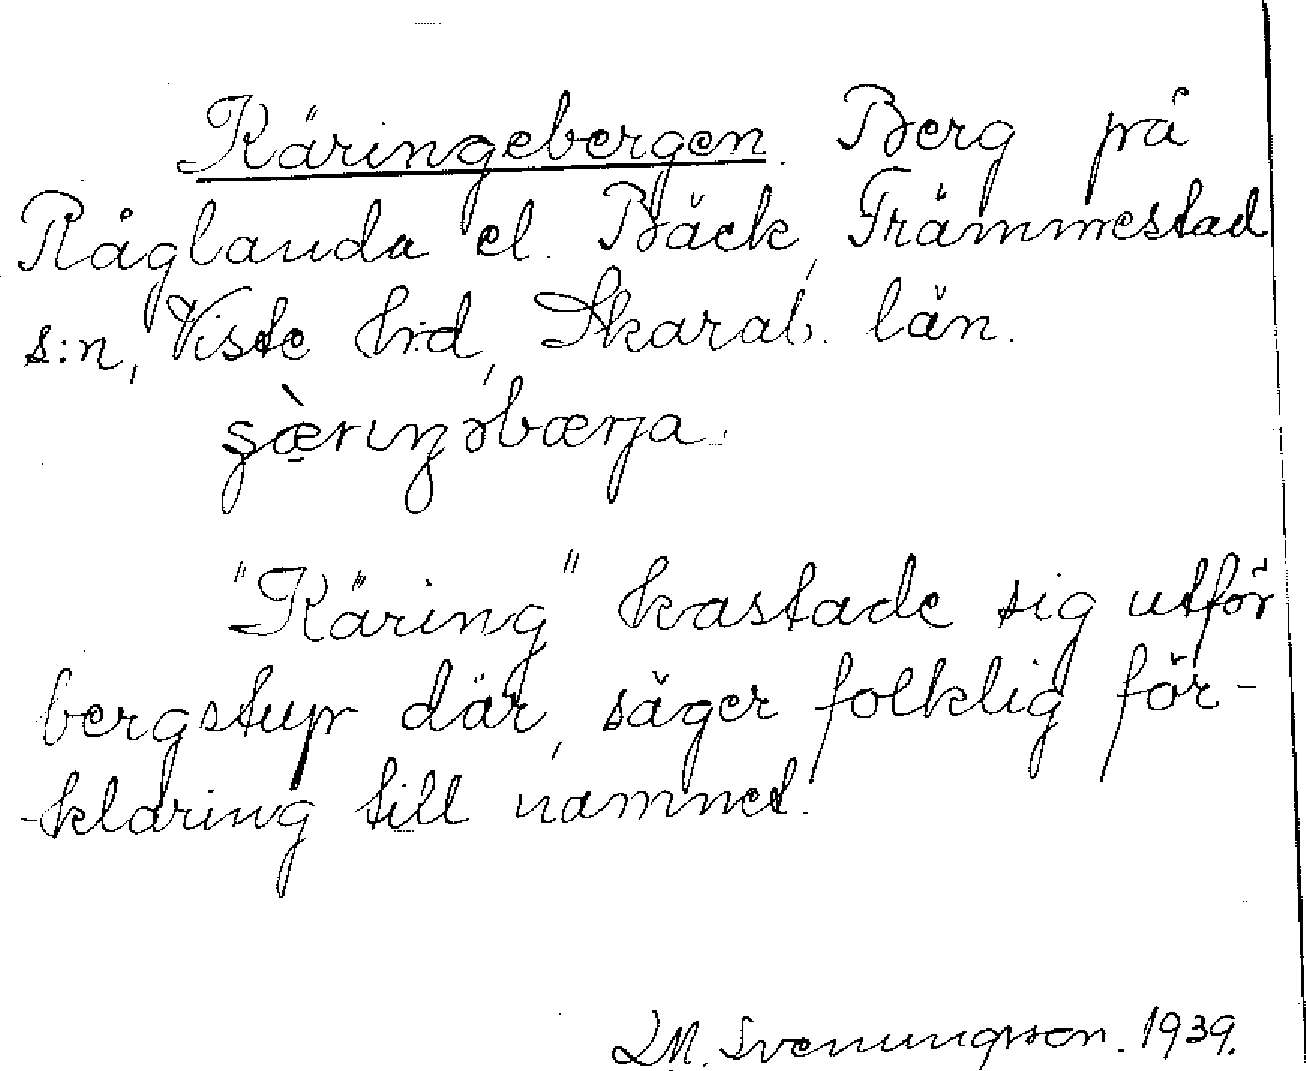 Käringebergen. Berg på
Råglanda el. Bäck, Främmestad
s:n, Viste hrd, Skarab. län.
"Käring" kastade sig utför
bergstup där, säger folklig för-
-klaring till namnet.
L.M. Svenungsson. 1939.